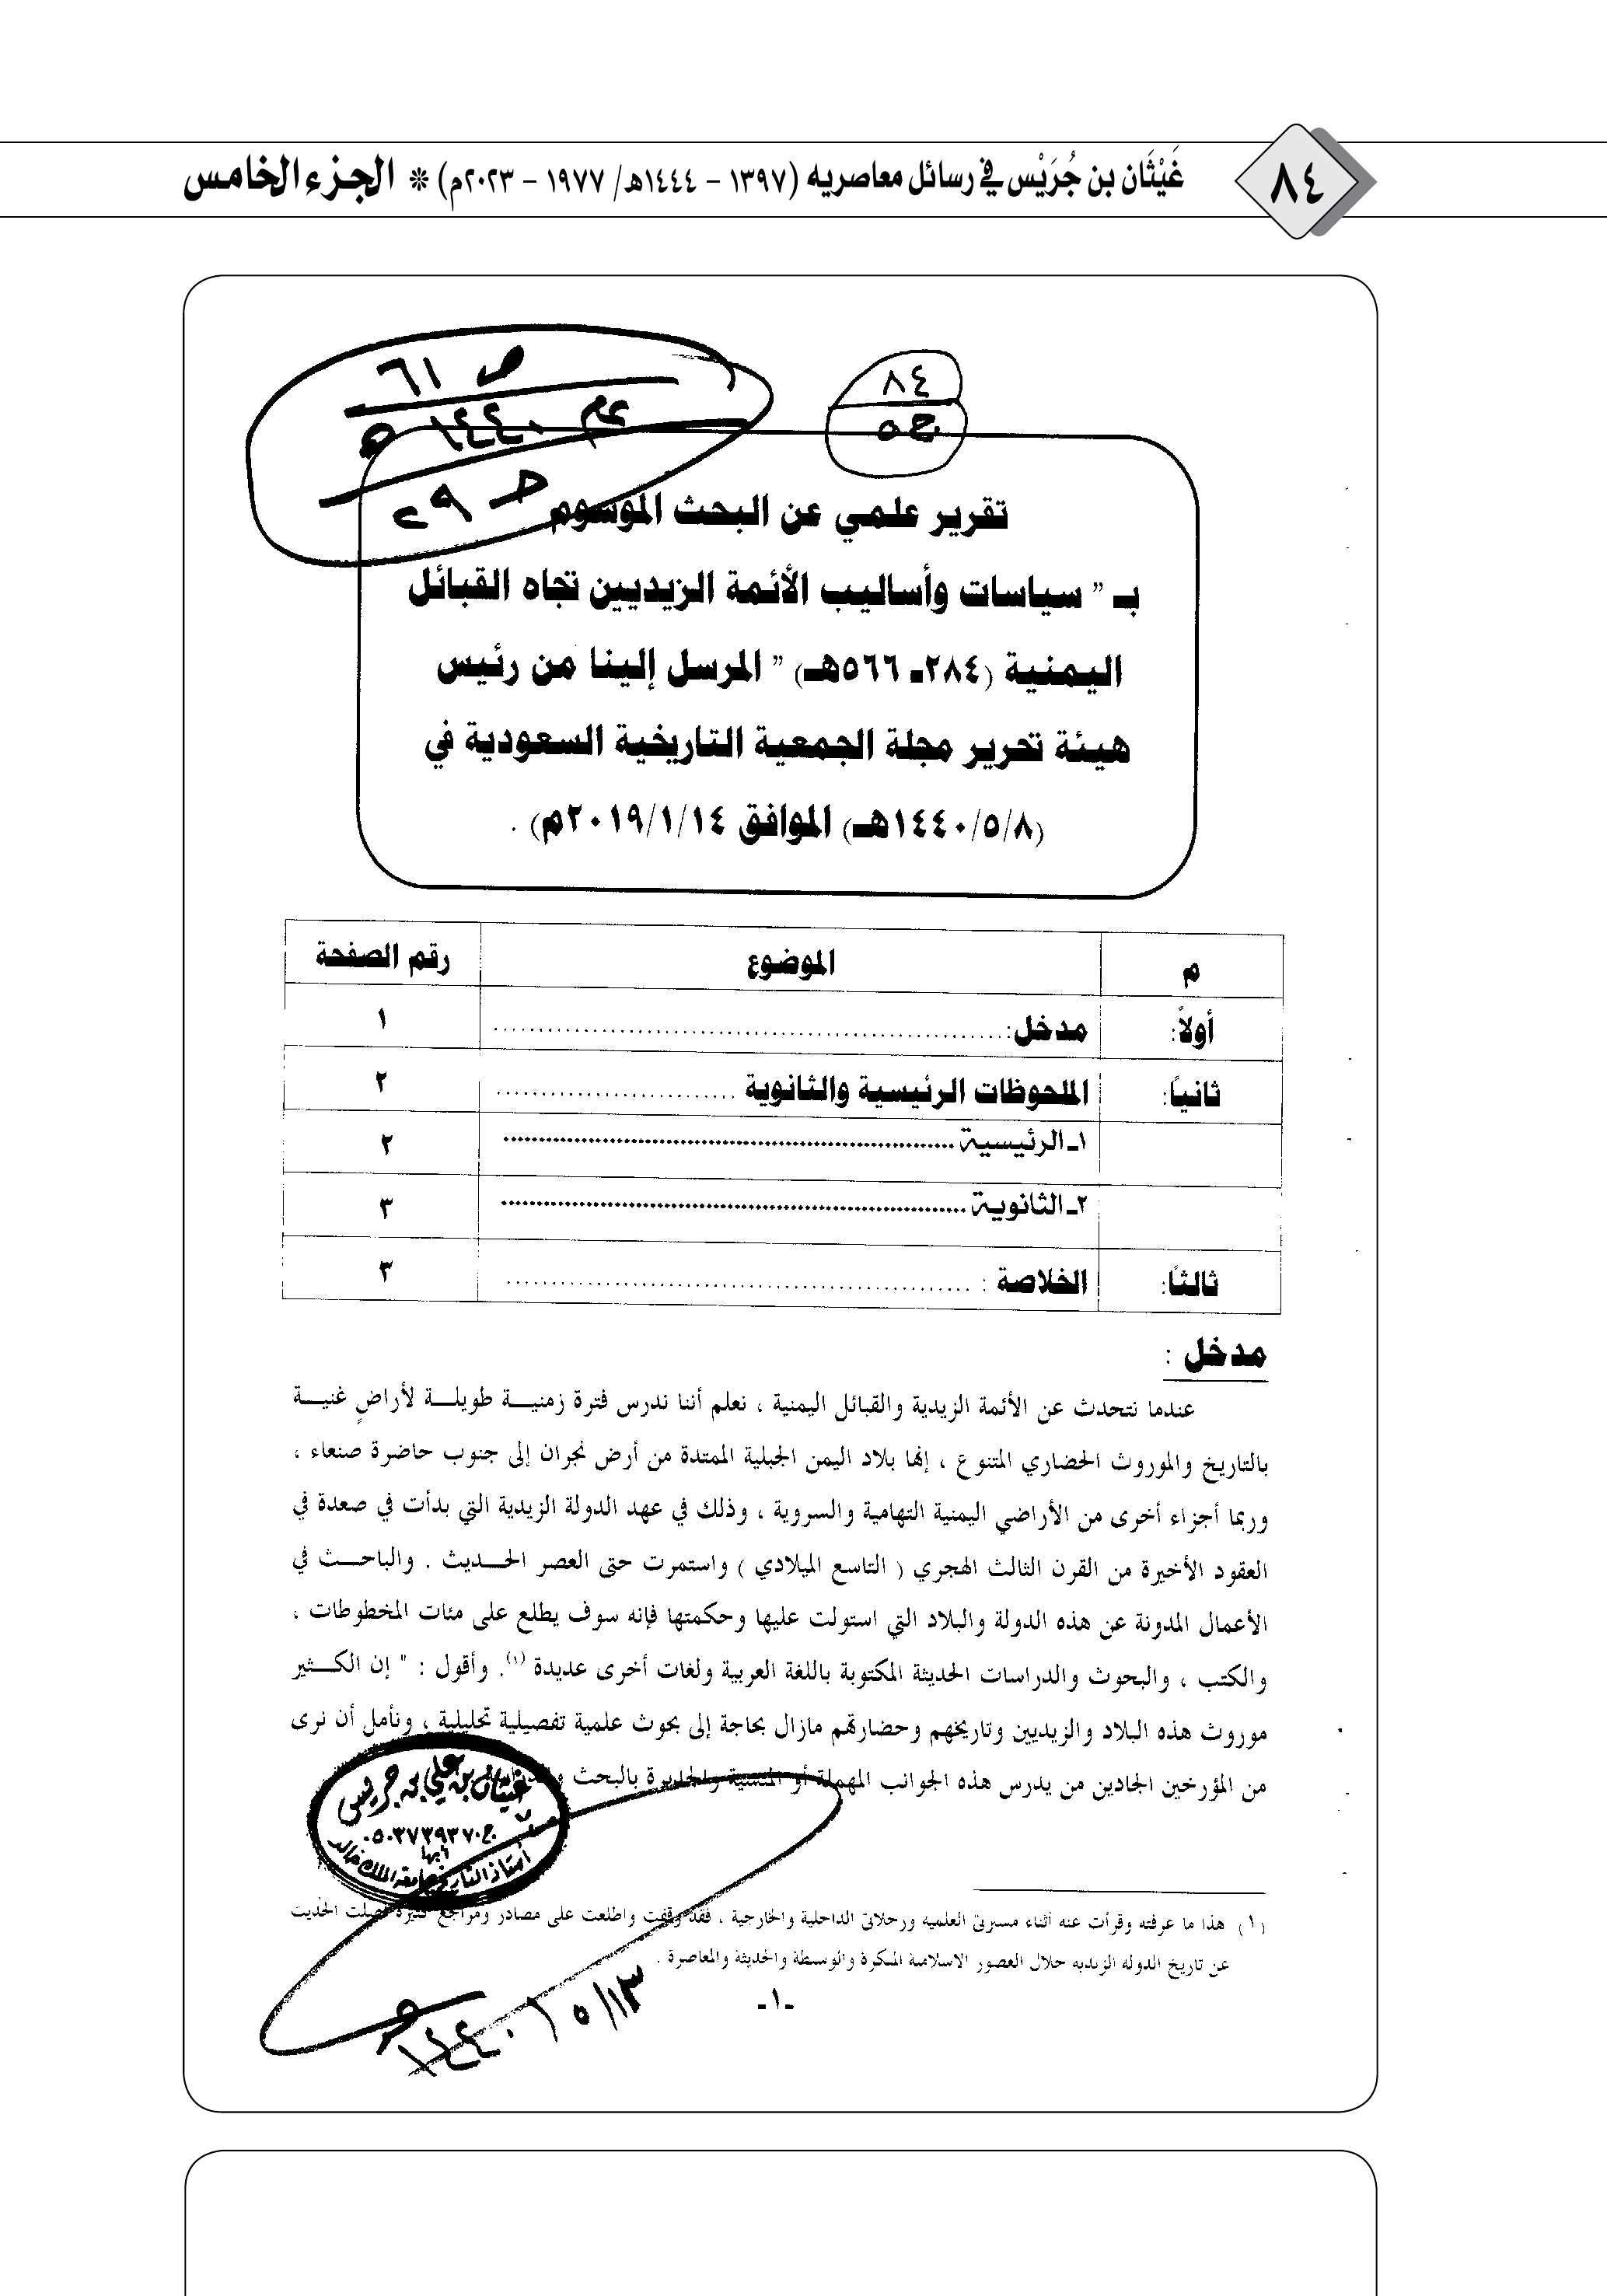 ٨٤
غَيْثَان بن جُرَيْس في رسائل معاصريه (١٣٩٧ - ١٤٤٤هـ/ ١٩٧٧ - ٢٠٢٣م) * الجزء الخامس
ص ٦١
عام ١٤٤٠هـ
٨٤
ج٥
تقرير علمي عن البحث الموسوم
بـ " سياسات وأساليب الأئمة الزيديين تجاه القبائل
اليمنية (٢٨٤ـ ٥٦٦هـ) " المرسل إلينا من رئيس
هيئة تحرير مجلة الجمعية التاريخية السعودية في
(١٤٤٠/٥/٨هـ) الموافق ٢٠١٩/١/١٤م) .
م الموضوع رقم الصفحة
أولاً: مدخل: ١
ثانياً: الملحوظات الرئيسية والثانوية ٢
١ـ الرئيسية ٢
٢ـ الثانوية ٣
ثالثاً: الخلاصة : ٣
مدخل :
عندما نتحدث عن الأئمة الزيدية والقبائل اليمنية ، نعلم أننا ندرس فترة زمنيــة طويلــة لأراضٍ غنيــة
بالتاريخ والموروث الحضاري المتنوع ، إنها بلاد اليمن الجبلية الممتدة من أرض نجران إلى جنوب حاضرة صنعاء ،
وربما أجزاء أخرى من الأراضي اليمنية التهامية والسروية ، وذلك في عهد الدولة الزيدية التي بدأت في صعدة في
العقود الأخيرة من القرن الثالث الهجري ( التاسع الميلادي ) واستمرت حتى العصر الحــديث . والباحــث في
الأعمال المدونة عن هذه الدولة والبلاد التي استولت عليها وحكمتها فإنه سوف يطلع على مئات المخطوطات ،
والكتب ، والبحوث والدراسات الحديثة المكتوبة باللغة العربية ولغات أخرى عديدة (١). وأقول : " إن الكــثير
موروث هذه البلاد والزيديين وتاريخهم وحضارتهم مازال بحاجة إلى بحوث علمية تفصيلية تحليلية ، ونأمل أن نرى
من المؤرخين الجادين من يدرس هذه الجوانب المهملة أو المنسية والجديرة بالبحث
غيثان بن علي بن جريس
ج.٠٥٠٣٧٣٩٣٧
أبها
أستاذ التاريخ بجامعة الملك خالد
(١) هذا ما عرفته وقرأت عنه أثناء مسيرتي العلمية ورحلاتي الداخلية والخارجية ، فقد وقفت واطلعت على مصادر ومراجع كثيرة فصلت الحديث
عن تاريخ الدولة الزيدية خلال العصور الإسلامية المبكرة والوسيطة والحديثة والمعاصرة .
ـ١ـ
١٤٤٠/٥/١٣هـ